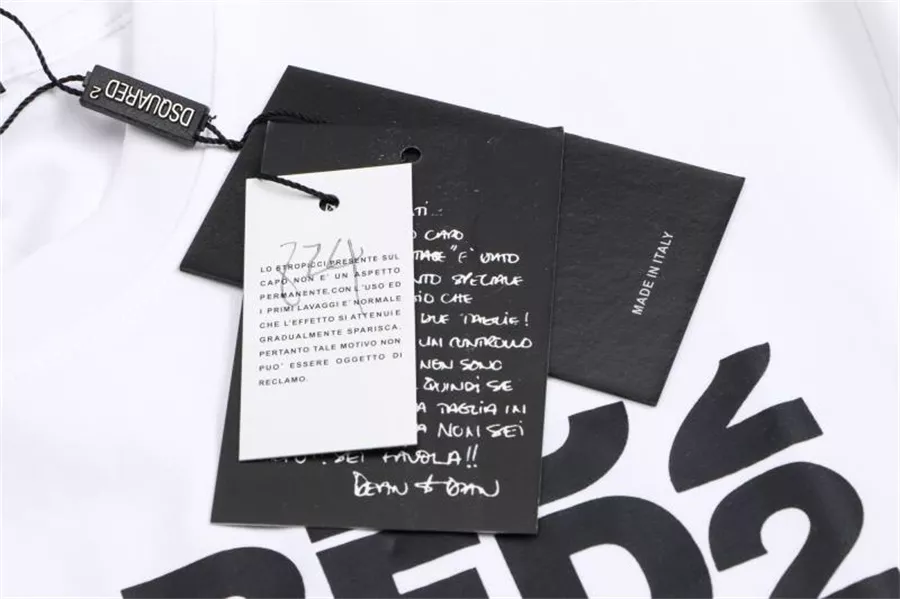 DSQUARED2
MADE IN ITALY
LO STROPICCI PRESENTE SUL
CAPO NON E' UN ASPETTO
PERMANENTE, CON L'USO ED
I PRIMI LAVAGGI E' NORMALE
CHE L'EFFETTO SI ATTENUI E
GRADUALMENTE SPARISCA.
PERTANTO TALE MOTIVO NON
PUO' ESSERE OGGETTO DI
RECLAMO.
CAPO
" E' USATO
SPECIALE
CHE
DUE TAGLIE!
UN CONTROLLO
NON SONO
QUINDI SE
TAGLIA IN
NON SEI
SEI FAVOLA!!
DEAN & DAN